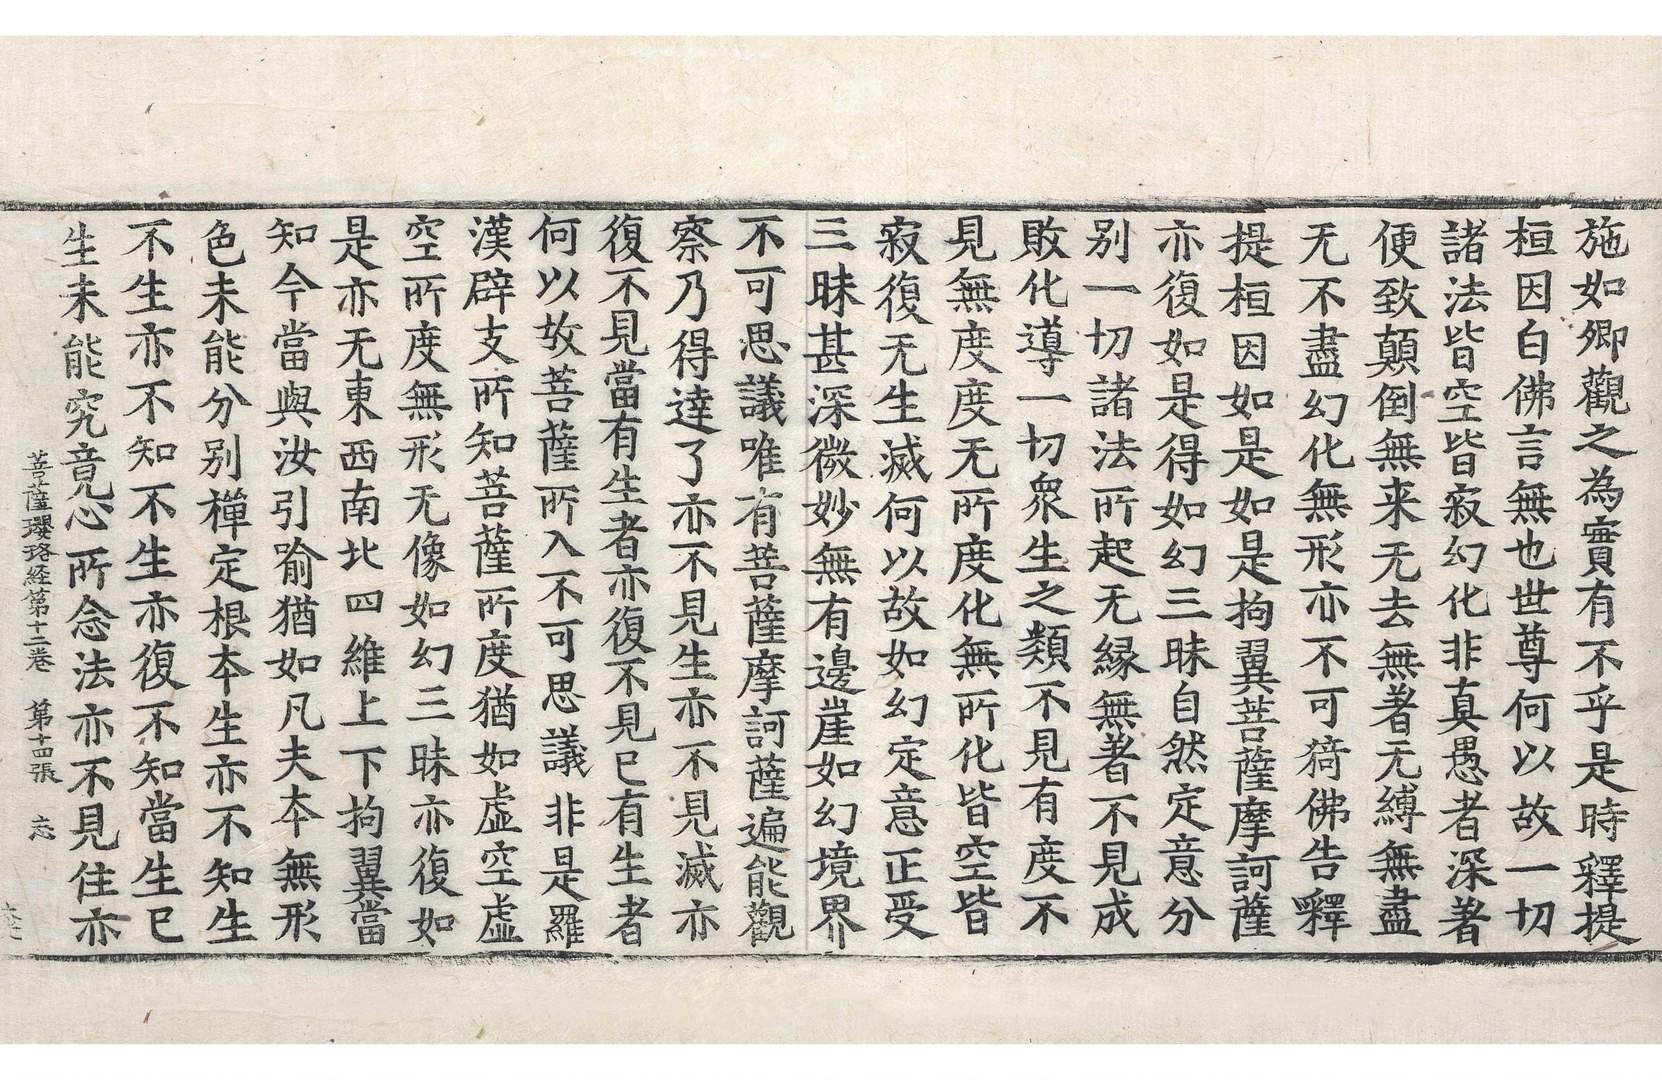 施如卿觀之為實有不乎是時釋提
桓因白佛言無也世尊何以故一切
諸法皆空皆寂幻化非真愚者深著
便致顛倒無来无去無著无縛無盡
无不盡幻化無形亦不可猗佛告釋
提桓因如是如是拘翼菩薩摩訶薩
亦復如是得如幻三昧自然定意分
別一切諸法所起无縁無著不見成
敗化導一切衆生之類不見有度不
見無度度无所度化無所化皆空皆
寂復无生滅何以故如幻定意正受
三昧甚深微妙無有邊崖如幻境界
不可思議唯有菩薩摩訶薩遍能觀
察乃得達了亦不見生亦不見滅亦
復不見當有生者亦復不見已有生者
何以故菩薩所入不可思議非是羅
漢辟支所知菩薩所度猶如虛空虛
空所度無形无像如幻三昧亦復如
是亦无東西南北四維上下拘翼當
知今當與汝引喻猶如凡夫本無形
色未能分別禪定根本生亦不知生
不生亦不知不生亦復不知當生已
生未能究竟心所念法亦不見住亦
菩薩瓔珞経第十二卷 第十四張 志